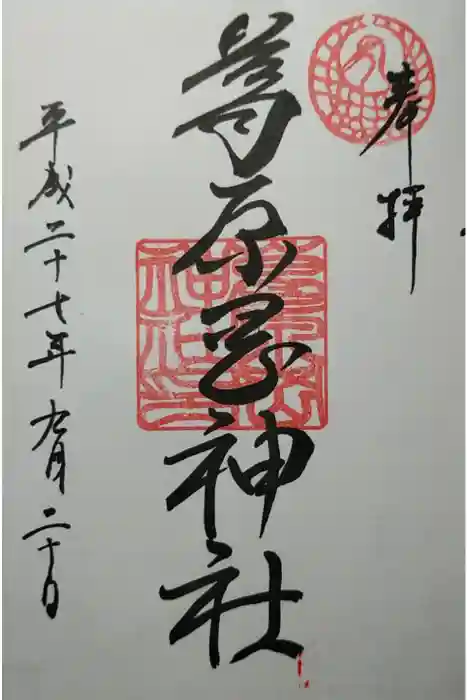 奉拝
葛原岡神社
平成二十七年九月二十日